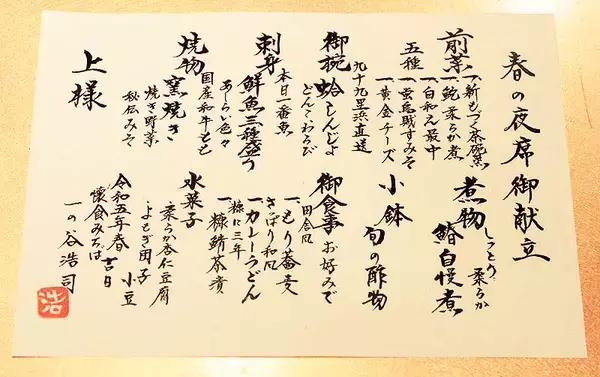 春の夜席御献立
前菜
五種
一、新もづく茶碗蒸
一、鮑柔らか煮
一、白和え最中
一、蛍烏賊すみそ
一、黄金チーズ
御椀
蛤しんじょ
九十九里浜直送
どんこ、わらび
刺身
鮮魚三種盛り
本日一番魚
あしらい色々
焼物
窯焼き
国産和牛もも
焼き野菜
秘伝みそ
上様
煮物
しっとり柔らか
鰆自慢煮
小鉢
旬の酢物
御食事
お好みで
一、もり蕎麦
田舎風
さっぱり和風
一、カレーうどん
糠に三年
一、糠鯖茶漬
水菓子
柔らか杏仁豆腐
よもぎ団子
小豆
令和五年春吉日
懐食みちば
一の谷浩司
浩